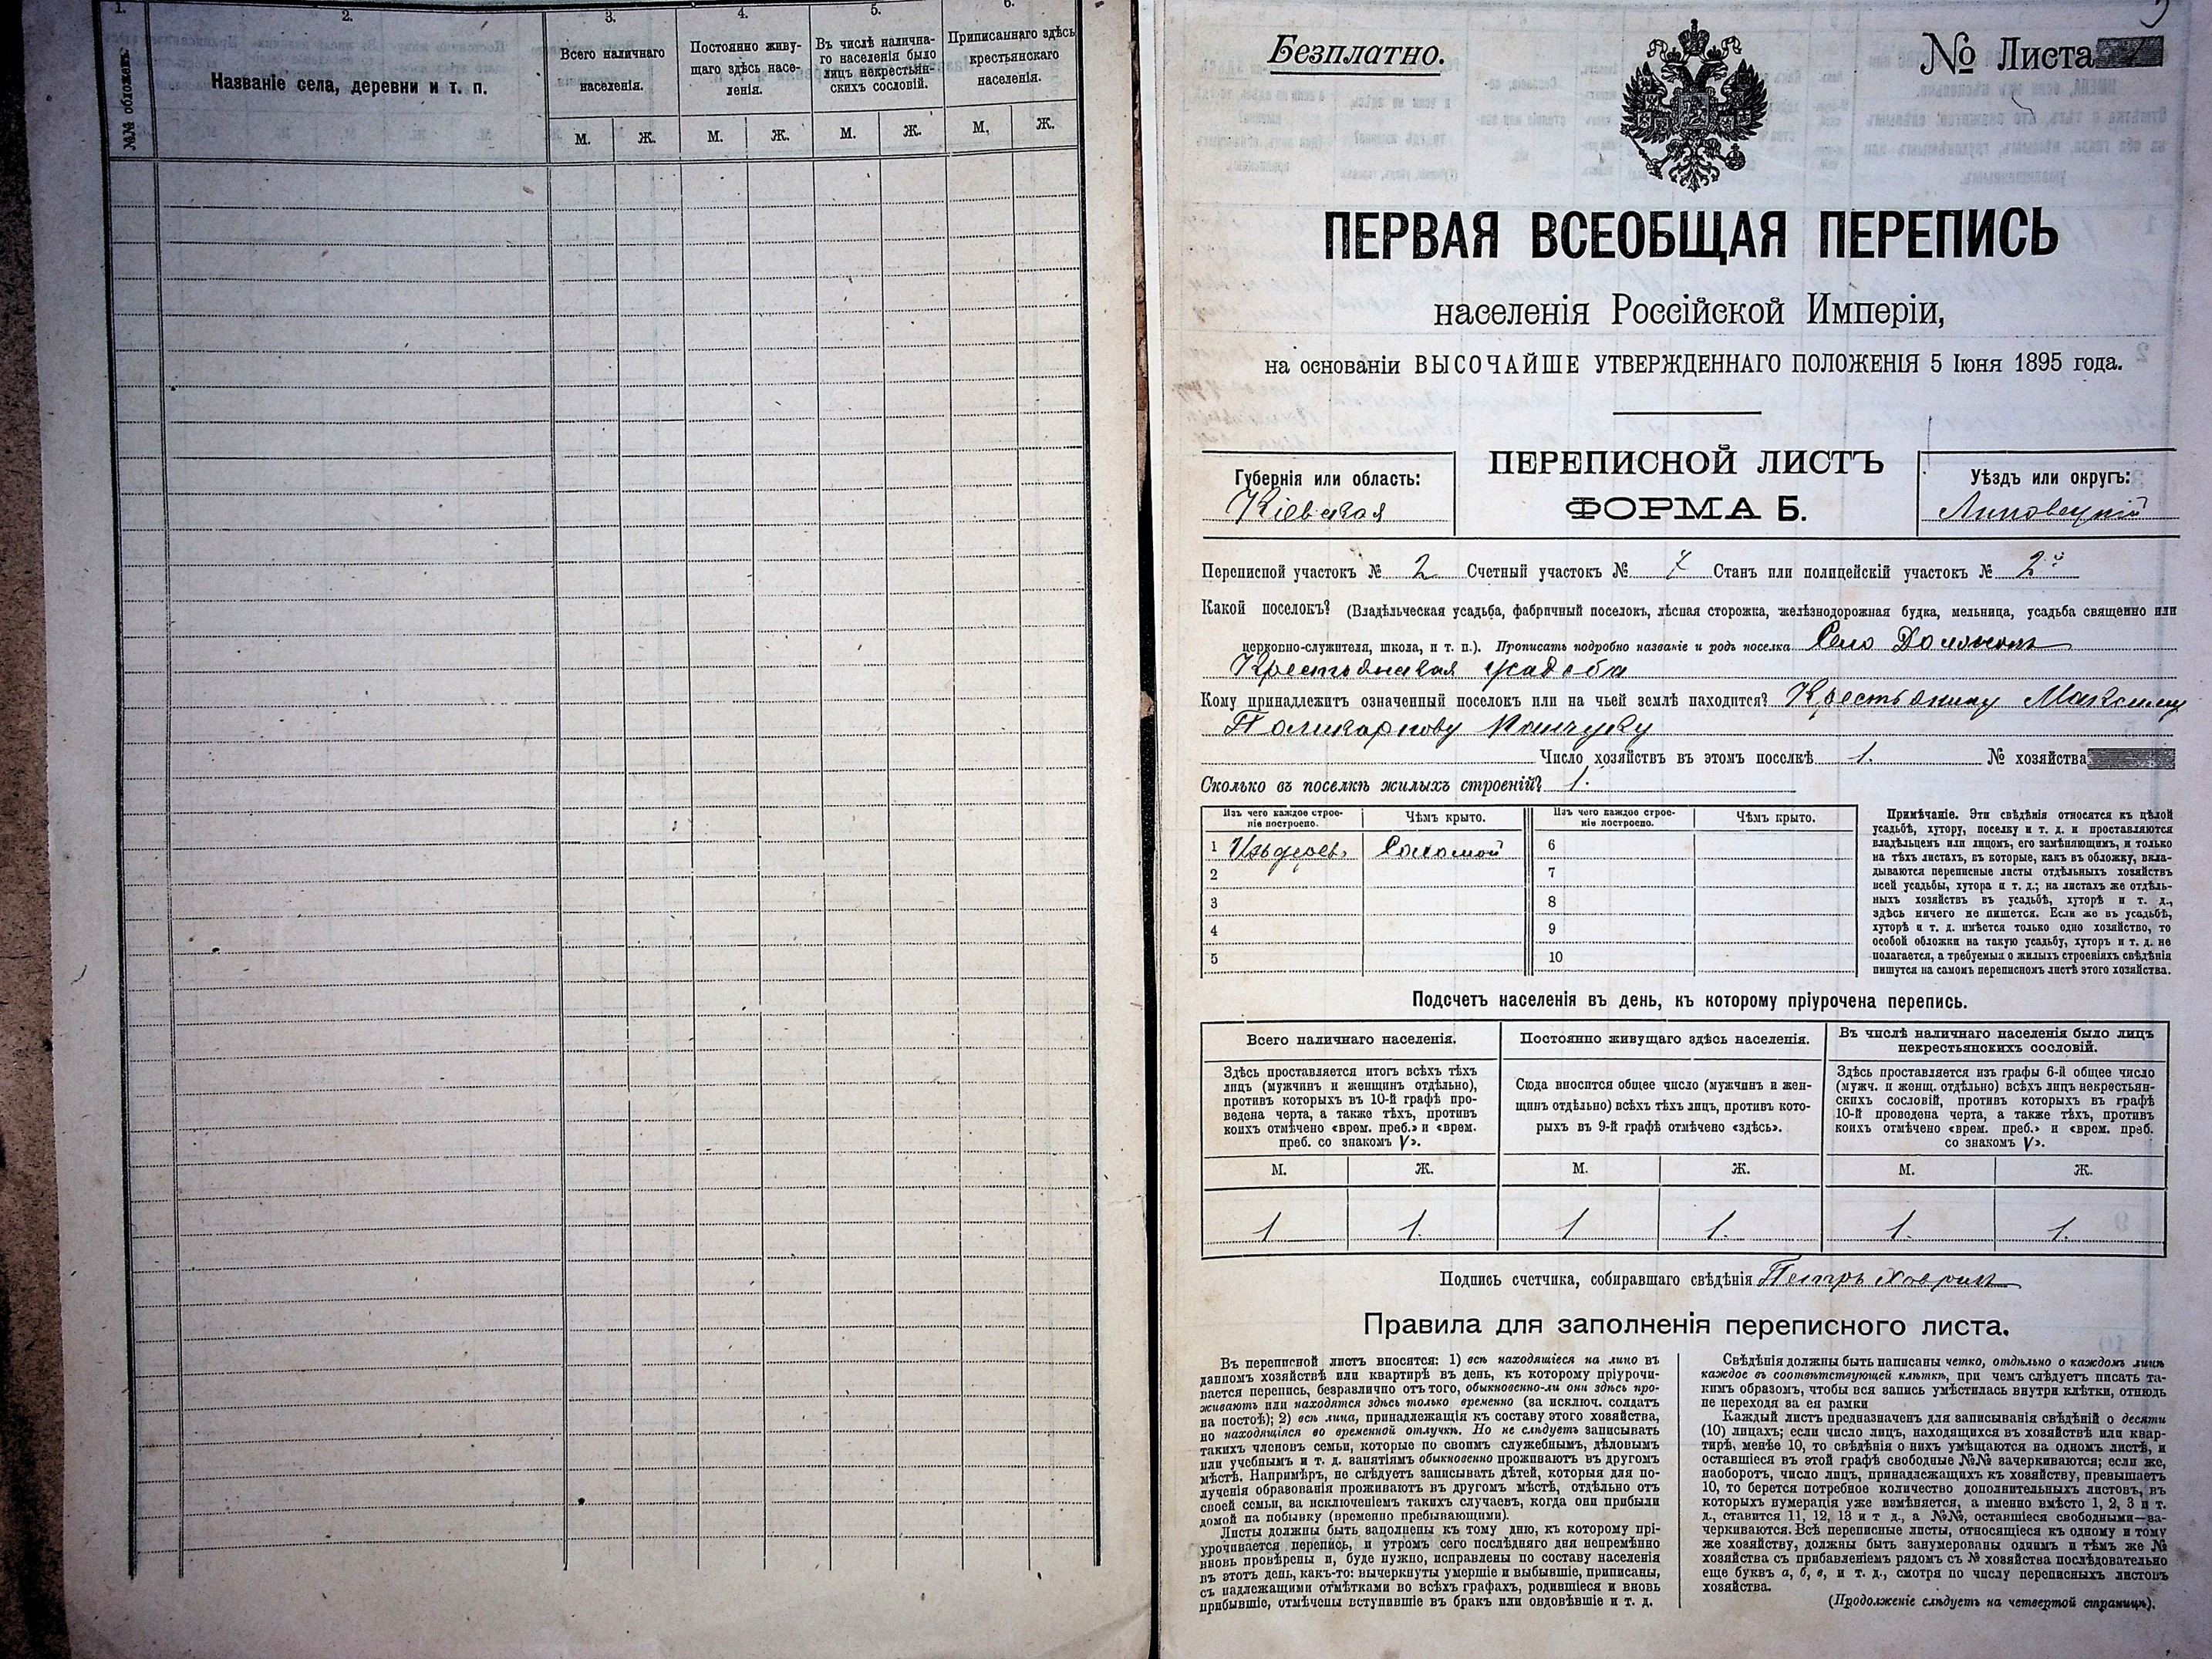 1.
2.
3.
4.
5.
6.
№№ обложекъ
Названіе села, деревни и т. п.
Всего наличнаго
населенія.
Постоянно живу-
щаго здѣсь насе-
ленія.
Въ числѣ налична-
го населенія было
лицъ некрестьян-
скихъ сословій.
Приписаннаго здѣсь
крестьянскаго
населенія.
М. Ж. М. Ж. М. Ж. М. Ж.
Безплатно.
№ Листа
ПЕРВАЯ ВСЕОБЩАЯ ПЕРЕПИСЬ
населенія Россійской Имперіи,
на основаніи ВЫСОЧАЙШЕ УТВЕРЖДЕННАГО ПОЛОЖЕНІЯ 5 Іюня 1895 года.
Губернія или область:
Кіевская
ПЕРЕПИСНОЙ ЛИСТЪ
ФОРМА Б.
Уѣздъ или округъ:
Липовецкій
Переписной участокъ № 2 Счетный участокъ № 7 Станъ или полицейскій участокъ № 2й
Какой поселокъ? (Владѣльческая усадьба, фабричный поселокъ, лѣсная сторожка, желѣзнодорожная будка, мельница, усадьба священно или
церковно-служителя, школа, и т. п.). Прописать подробно названіе и родъ поселка Село
Крестьянская усадьба
Кому принадлежитъ означенный поселокъ или на чьей землѣ находится? Крестьянину Максиму
Поликарпову
Число хозяйствъ въ этомъ поселкѣ 1. № хозяйства
Сколько въ поселкѣ жилыхъ строеній? 1.
Изъ чего каждое строе-
ніе построено.
Чѣмъ крыто.
Изъ чего каждое строе-
ніе построено.
Чѣмъ крыто.
1 Изъ дерев. Соломой 6
2 7
3 8
4 9
5 10
Примѣчаніе. Эти свѣдѣнія относятся къ цѣлой
усадьбѣ, хутору, поселку и т. д. и проставляются
владѣльцемъ или лицомъ, его замѣняющимъ, и только
на тѣхъ листахъ, въ которые, какъ въ обложку, вкла-
дываются переписные листы отдѣльныхъ хозяйствъ
всей усадьбы, хутора и т. д.; на листахъ же отдѣль-
ныхъ хозяйствъ въ усадьбѣ, хуторѣ и т. д.,
здѣсь ничего не пишется. Если же въ усадьбѣ,
хуторѣ и т. д. имѣется только одно хозяйство, то
особой обложки на такую усадьбу, хуторъ и т. д. не
полагается, а требуемыя о жилыхъ строеніяхъ свѣдѣнія
пишутся на самомъ переписномъ листѣ этого хозяйства.
Подсчетъ населенія въ день, къ которому пріурочена перепись.
Всего наличнаго населенія.
Здѣсь проставляется итогъ всѣхъ тѣхъ
лицъ (мужчинъ и женщинъ отдѣльно),
противъ которыхъ въ 10-й графѣ про-
ведена черта, а также тѣхъ, противъ
коихъ отмѣчено «врем. преб.» и «врем.
преб. со знакомъ V».
Постоянно живущаго здѣсь населенія.
Сюда вносится общее число (мужчинъ и жен-
щинъ отдѣльно) всѣхъ тѣхъ лицъ, противъ кото-
рыхъ въ 9-й графѣ отмѣчено «здѣсь».
Въ числѣ наличнаго населенія было лицъ
некрестьянскихъ сословій.
Здѣсь проставляется изъ графы 6-й общее число
(мужч. и женщ. отдѣльно) всѣхъ лицъ некрестьян-
скихъ сословій, противъ которыхъ въ графѣ
10-й проведена черта, а также тѣхъ, противъ
коихъ отмѣчено «врем. преб.» и «врем. преб.
со знакомъ V».
М. Ж. М. Ж. М. Ж.
1 1. 1 1. 1. 1.
Подпись счетчика, собиравшаго свѣдѣнія Петръ
Правила для заполненія переписного листа.
Въ переписной листъ вносятся: 1) всѣ находящіеся на лицо въ
данномъ хозяйствѣ или квартирѣ въ день, къ которому пріурочи-
вается перепись, безразлично отъ того, обыкновенно-ли они здѣсь про-
живаютъ или находятся здѣсь только временно (за исключ. солдатъ
на постоѣ); 2) всѣ лица, принадлежащія къ составу этого хозяйства,
но находящіяся во временной отлучкѣ. Но не слѣдуетъ записывать
такихъ членовъ семьи, которые по своимъ служебнымъ, дѣловымъ
или учебнымъ и т. д. занятіямъ обыкновенно проживаютъ въ другомъ
мѣстѣ. Напримѣръ, не слѣдуетъ записывать дѣтей, которыя для по-
лученія образованія проживаютъ въ другомъ мѣстѣ, отдѣльно отъ
своей семьи, за исключеніемъ такихъ случаевъ, когда они прибыли
домой на побывку (временно пребывающими).
Листы должны быть заполнены къ тому дню, къ которому прі-
урочивается перепись, и утромъ сего послѣдняго дня непремѣнно
вновь провѣрены и, буде нужно, исправлены по составу населенія
въ этотъ день, какъ-то: вычеркнуты умершіе и выбывшіе, приписаны,
съ надлежащими отмѣтками во всѣхъ графахъ, родившіеся и вновь
прибывшіе, отмѣчены вступившіе въ бракъ или овдовѣвшіе и т. д.
Свѣдѣнія должны быть написаны четко, отдѣльно о каждомъ лицѣ
каждое въ соотвѣтствующей клѣткѣ, при чемъ слѣдуетъ писать та-
кимъ образомъ, чтобы вся запись умѣстилась внутри клѣтки, отнюдь
не переходя за ея рамки
Каждый листъ предназначенъ для записыванія свѣдѣній о десяти
(10) лицахъ; если число лицъ, находящихся въ хозяйствѣ или квар-
тирѣ, менѣе 10, то свѣдѣнія о нихъ умѣщаются на одномъ листѣ, и
оставшіеся въ этой графѣ свободные №№ зачеркиваются; если же,
наоборотъ, число лицъ, принадлежащихъ къ хозяйству, превышаетъ
10, то берется потребное количество дополнительныхъ листовъ, въ
которыхъ нумерація уже измѣняется, а именно вмѣсто 1, 2, 3 и т.
д., ставится 11, 12, 13 и т д., а №№, оставшіеся свободными—за-
черкиваются. Всѣ переписные листы, относящіеся къ одному и тому
же хозяйству, должны быть занумерованы однимъ и тѣмъ же №
хозяйства съ прибавленіемъ рядомъ съ № хозяйства послѣдовательно
еще буквъ а, б, в, и т. д., смотря по числу переписныхъ листовъ
хозяйства.
(Продолженіе слѣдуетъ на четвертой страницѣ).